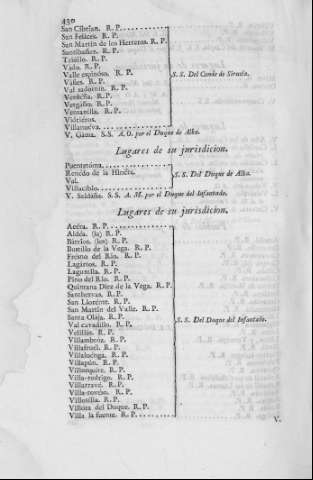 430
San Cibrian. R. P.
San Felices. R. P.
San Martin de los Herreros. R. P.
Santibañez. R. P.
Triollo. R. P.
Vado. R. P.
Valle espinoso. R. P.
Vañes. R. P.
Val sadornin. R. P.
Ventanilla. R. P.
Villanueva.
S. S. Del Conde de Siruela.
V. Gama. S.S. A. O. por el Duque de Alba.
Lugares de su jurisdicion.
Puentetoma.
Renedo de la Hinera.
Val.
Villacibio.
S. S. Del Duque de Alba.
V. Saldaña. S. S. A. M. por el Duque del Infantado.
Lugares de su jurisdicion.
Acéra. R. P.
Aldéa. (la) R. P.
Barrios. (los) R. P.
Bustillo de la Vega. R. P.
Fresno del Rio. R. P.
Lagartos. R. P.
Lagunilla. R. P.
Pino del Rio. R. P.
Quintana Diez de la Vega. R. P.
Santhervas. R. P.
San Llorente. R. P.
San Martin del Valle. R. P.
Santa Olaja. R. P.
Val cavadillo. R. P.
Velillas. R. P.
Villambroz. R. P.
Villafruel. R. P.
Villaluenga. R. P.
Villapun. R. P.
Villa-rodrigo. R. P.
Villarravé. R. P.
Villa-rovejo. R. P.
Villotilla. R. P.
Villota del Duque. R. P.
Villa la fuente. R. P.
S. S. Del Duque del Infantado.
V.